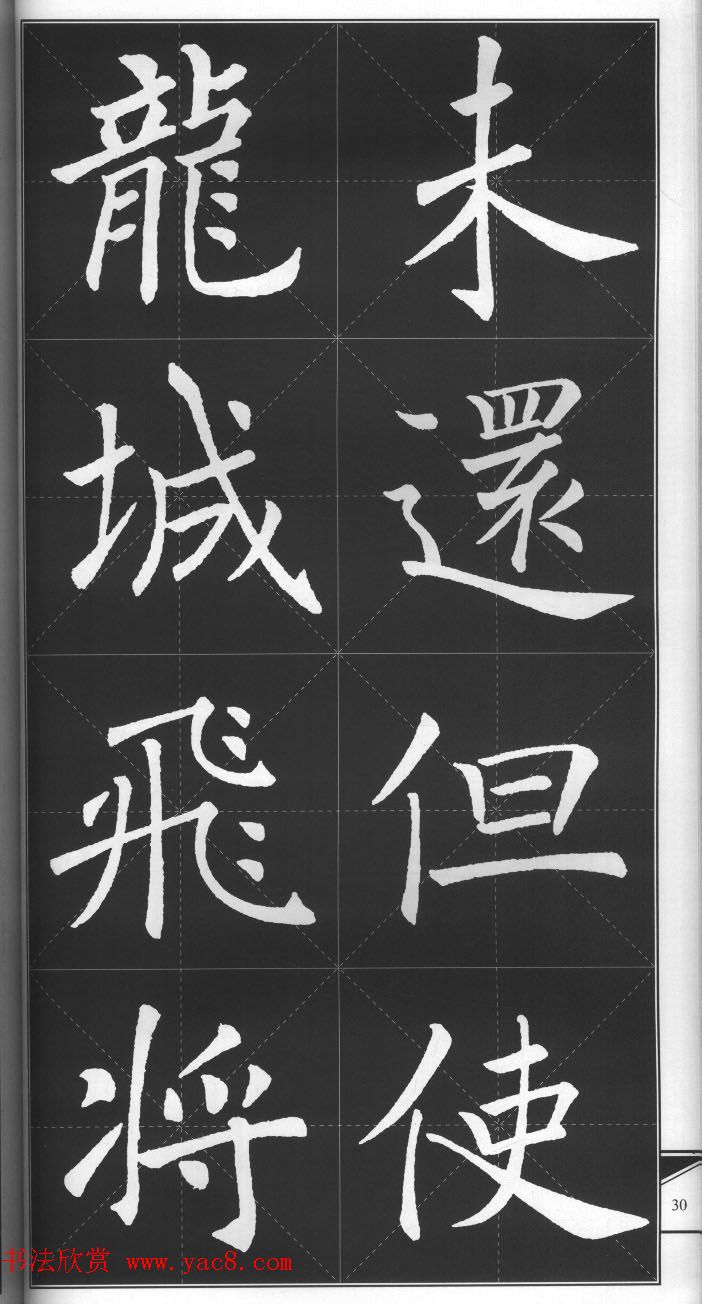 未還但使
龍城飛将
30
书法欣赏 www.yac8.com